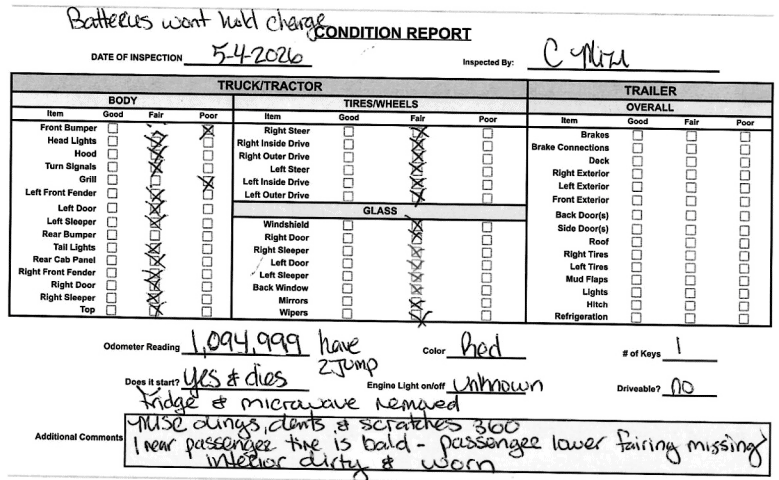 Batteries wont hold charge
CONDITION REPORT
DATE OF INSPECTION 5-4-2026 Inspected By: C
TRUCK/TRACTOR TRAILER
BODY TIRES/WHEELS OVERALL
Item Good Fair Poor Item Good Fair Poor Item Good Fair Poor
Front Bumper Right Steer Brakes
Head Lights Right Inside Drive Brake Connections
Hood Right Outer Drive Deck
Turn Signals Left Steer Right Exterior
Grill Left Inside Drive Left Exterior
Left Front Fender Left Outer Drive Front Exterior
Left Door GLASS Back Door(s)
Left Sleeper Windshield Side Door(s)
Rear Bumper Right Door Roof
Tail Lights Right Sleeper Right Tires
Rear Cab Panel Left Door Left Tires
Right Front Fender Left Sleeper Mud Flaps
Right Door Back Window Lights
Right Sleeper Mirrors Hitch
Top Wipers Refrigeration
Odometer Reading 1,094,999 have Color Red # of Keys 1
2 JUMP
Does it start? Yes & dies Engine Light on/off Unknown Driveable? NO
Fridge & microwave removed
Additional Comments Misc dings, dents & scratches 360
1 rear passenger tire is bald - passenger lower fairing missing
interior dirty & worn